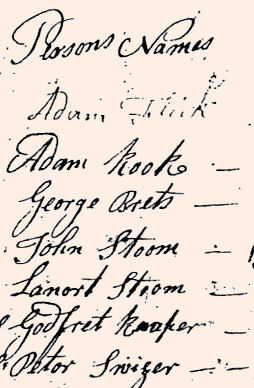 Persons Names
Adam Flick
Adam Kook —
George Brets —
John Stoom —
Lanort Stoom —
Godfret Knaper —
Petor Swizer —